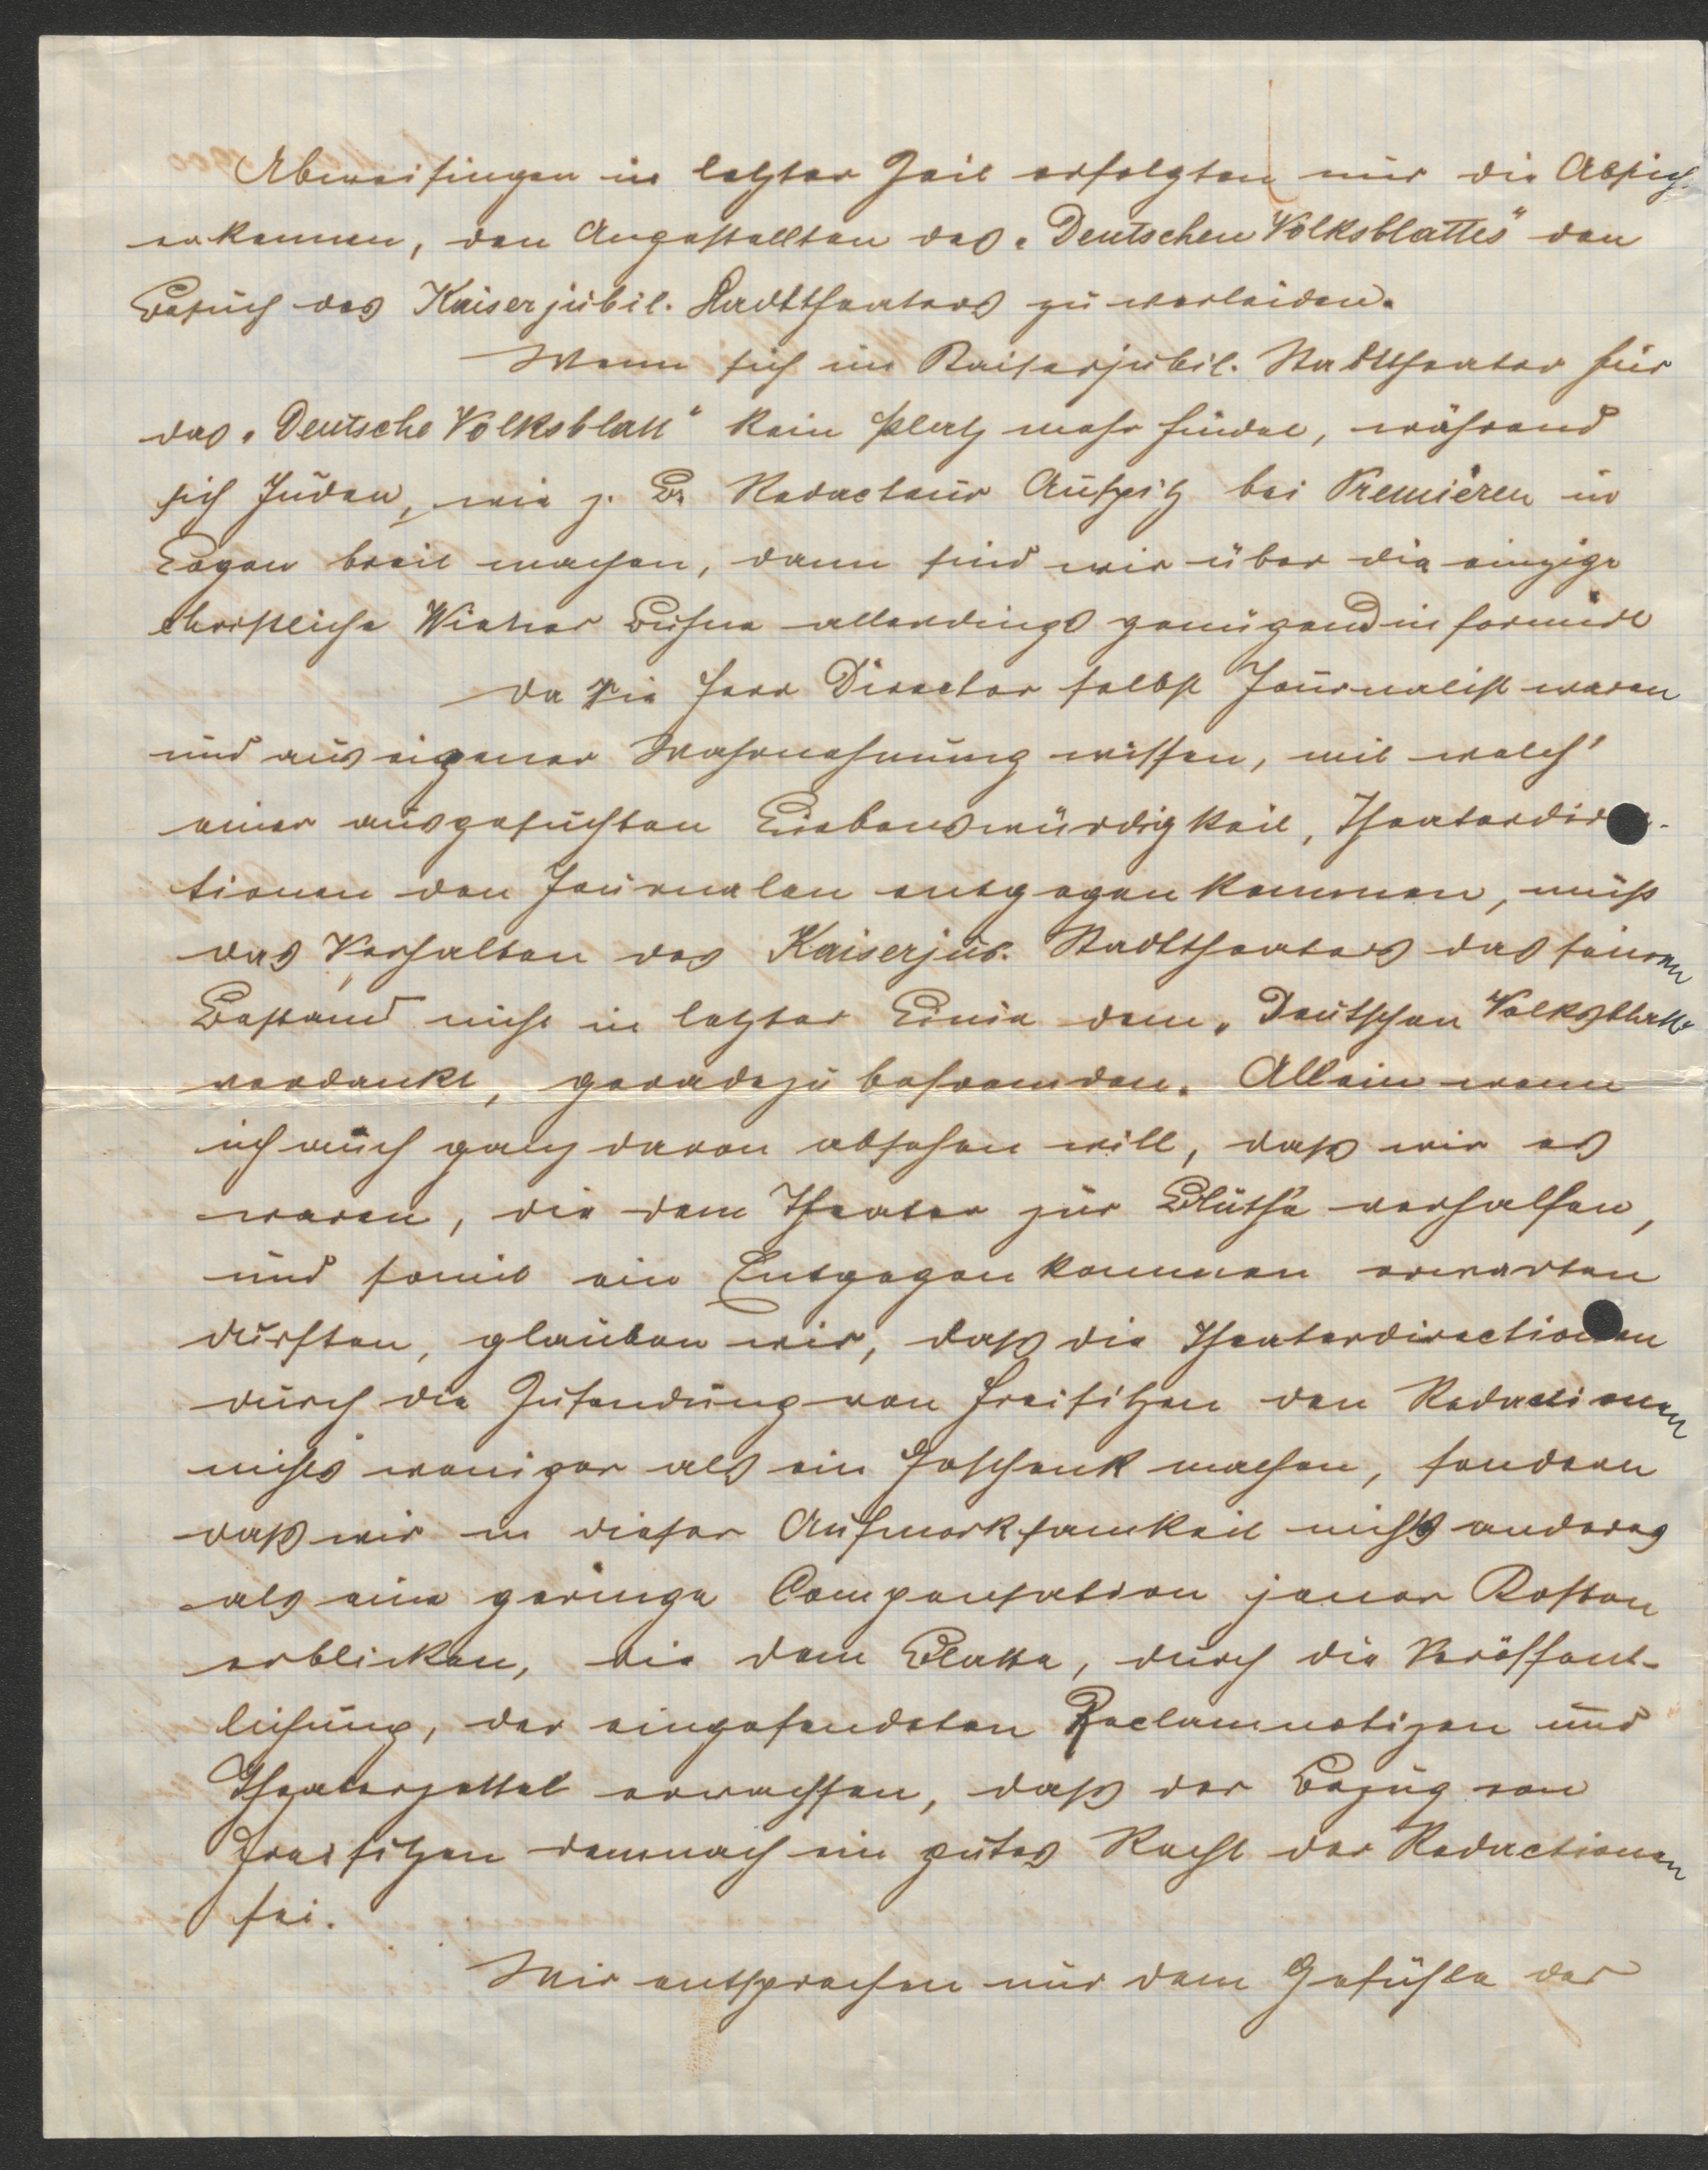 Abweisungen in letzter Zeit erfolgten nur die Absich
erkennen, den Angestellten des „Deutschen Volksblattes" den
Besuch des Kaiserjubil. Stadttheaters zu verleiden.
Wenn sich im Kaiserjubil. Stadttheater für
das „Deutsche Volksblatt" kein Platz mehr findet, während
sich Juden, wie z. B. Redacteur Auspitz bei Premièren in
Logen breit machen, dann sind wir über die einzige
christliche Wiener Bühne allerdings genügend informirt
Da Sie Herr Director selbst Journalist waren
und aus eigener Wahrnehmung wissen, mit welch'
einer ausgesuchten Liebenswürdigkeit, Theaterdirec-
tionen den Journalen entgegenkommen, muß
das Verhalten des Kaiserjub. Stadttheaters das seinen
Bestand nicht in letzter Linie dem „Deutschen Volksblatt
verdankt, geradezu befremden. Allein wenn
ich auch ganz davon absehen will, daß wir es
waren, die dem Theater zur Blüthe verhalfen,
und somit ein Entgegenkommen erwarten
durften, glauben wir, daß die Theaterdirectionen
durch die Zusendung von Freisitzen den Redactionen
nichts weniger als ein Geschenk machen, sondern
daß wir in dieser Aufmerksamkeit nichts anderes
als eine geringe Compensation jener Kosten
erblicken, die dem Blatte, durch die Veröffent-
lichung, der eingesendeten Reclamnotizen und
Theaterzettel erwachsen, daß der Bezug von
Freisitzen demnach ein gutes Recht der Redactionen
sei.
Wir entsprechen nur dem Gefühle der